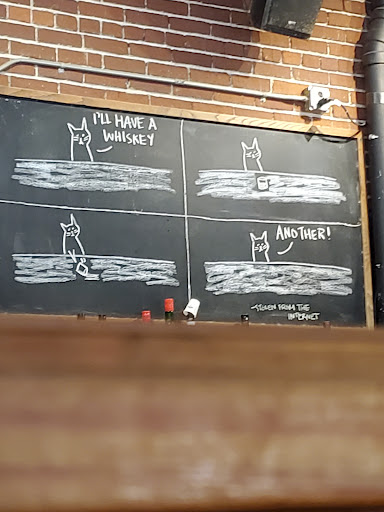 I'LL HAVE A
WHISKEY
ANOTHER!
STOLEN FROM THE
INTERNET